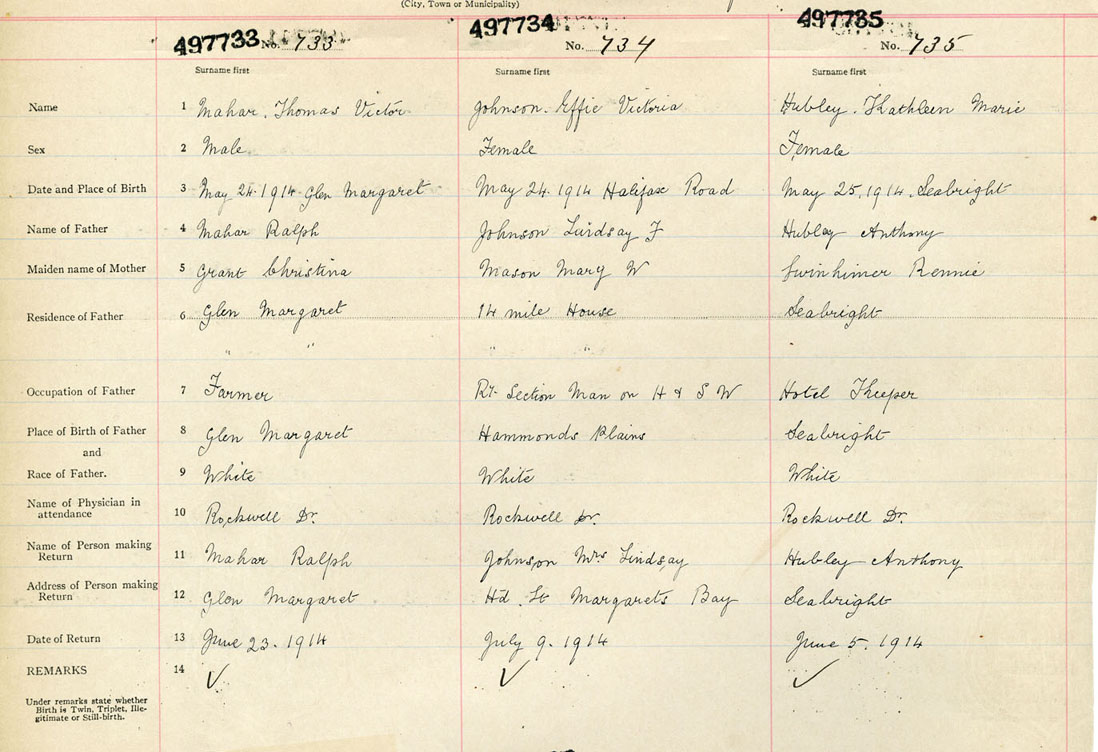 (City, Town or Municipality)
497733 No. 733 497734 No. 734 497735 No. 735
Surname first Surname first Surname first
Name 1 Mahar. Thomas Victor Johnson. Effie Victoria Hubley. Kathleen Marie
Sex 2 Male Female Female
Date and Place of Birth 3 May 24. 1914 Glen Margaret May 24. 1914 Halifax Road May 25, 1914. Seabright
Name of Father 4 Mahar Ralph Johnson Lindsay F Hubley Anthony
Maiden name of Mother 5 Grant Christina Mason Mary W Swinhimer Rennie
Residence of Father 6 Glen Margaret 14 mile House Seabright
" " " "
Occupation of Father 7 Farmer Ry. Section Man on H & S W Hotel Keeper
Place of Birth of Father 8 Glen Margaret Hammonds Plains Seabright
and
Race of Father. 9 White White White
Name of Physician in
attendance 10 Rockwell Dr. Rockwell Dr. Rockwell Dr.
Name of Person making
Return 11 Mahar Ralph Johnson Mrs Lindsay Hubley Anthony
Address of Person making
Return 12 Glen Margaret Hd. St Margarets Bay Seabright
Date of Return 13 June 23. 1914 July 9. 1914 June 5. 1914
REMARKS 14 ✓ ✓ ✓
Under remarks state whether
Birth is Twin, Triplet, Ille-
gitimate or Still-birth.